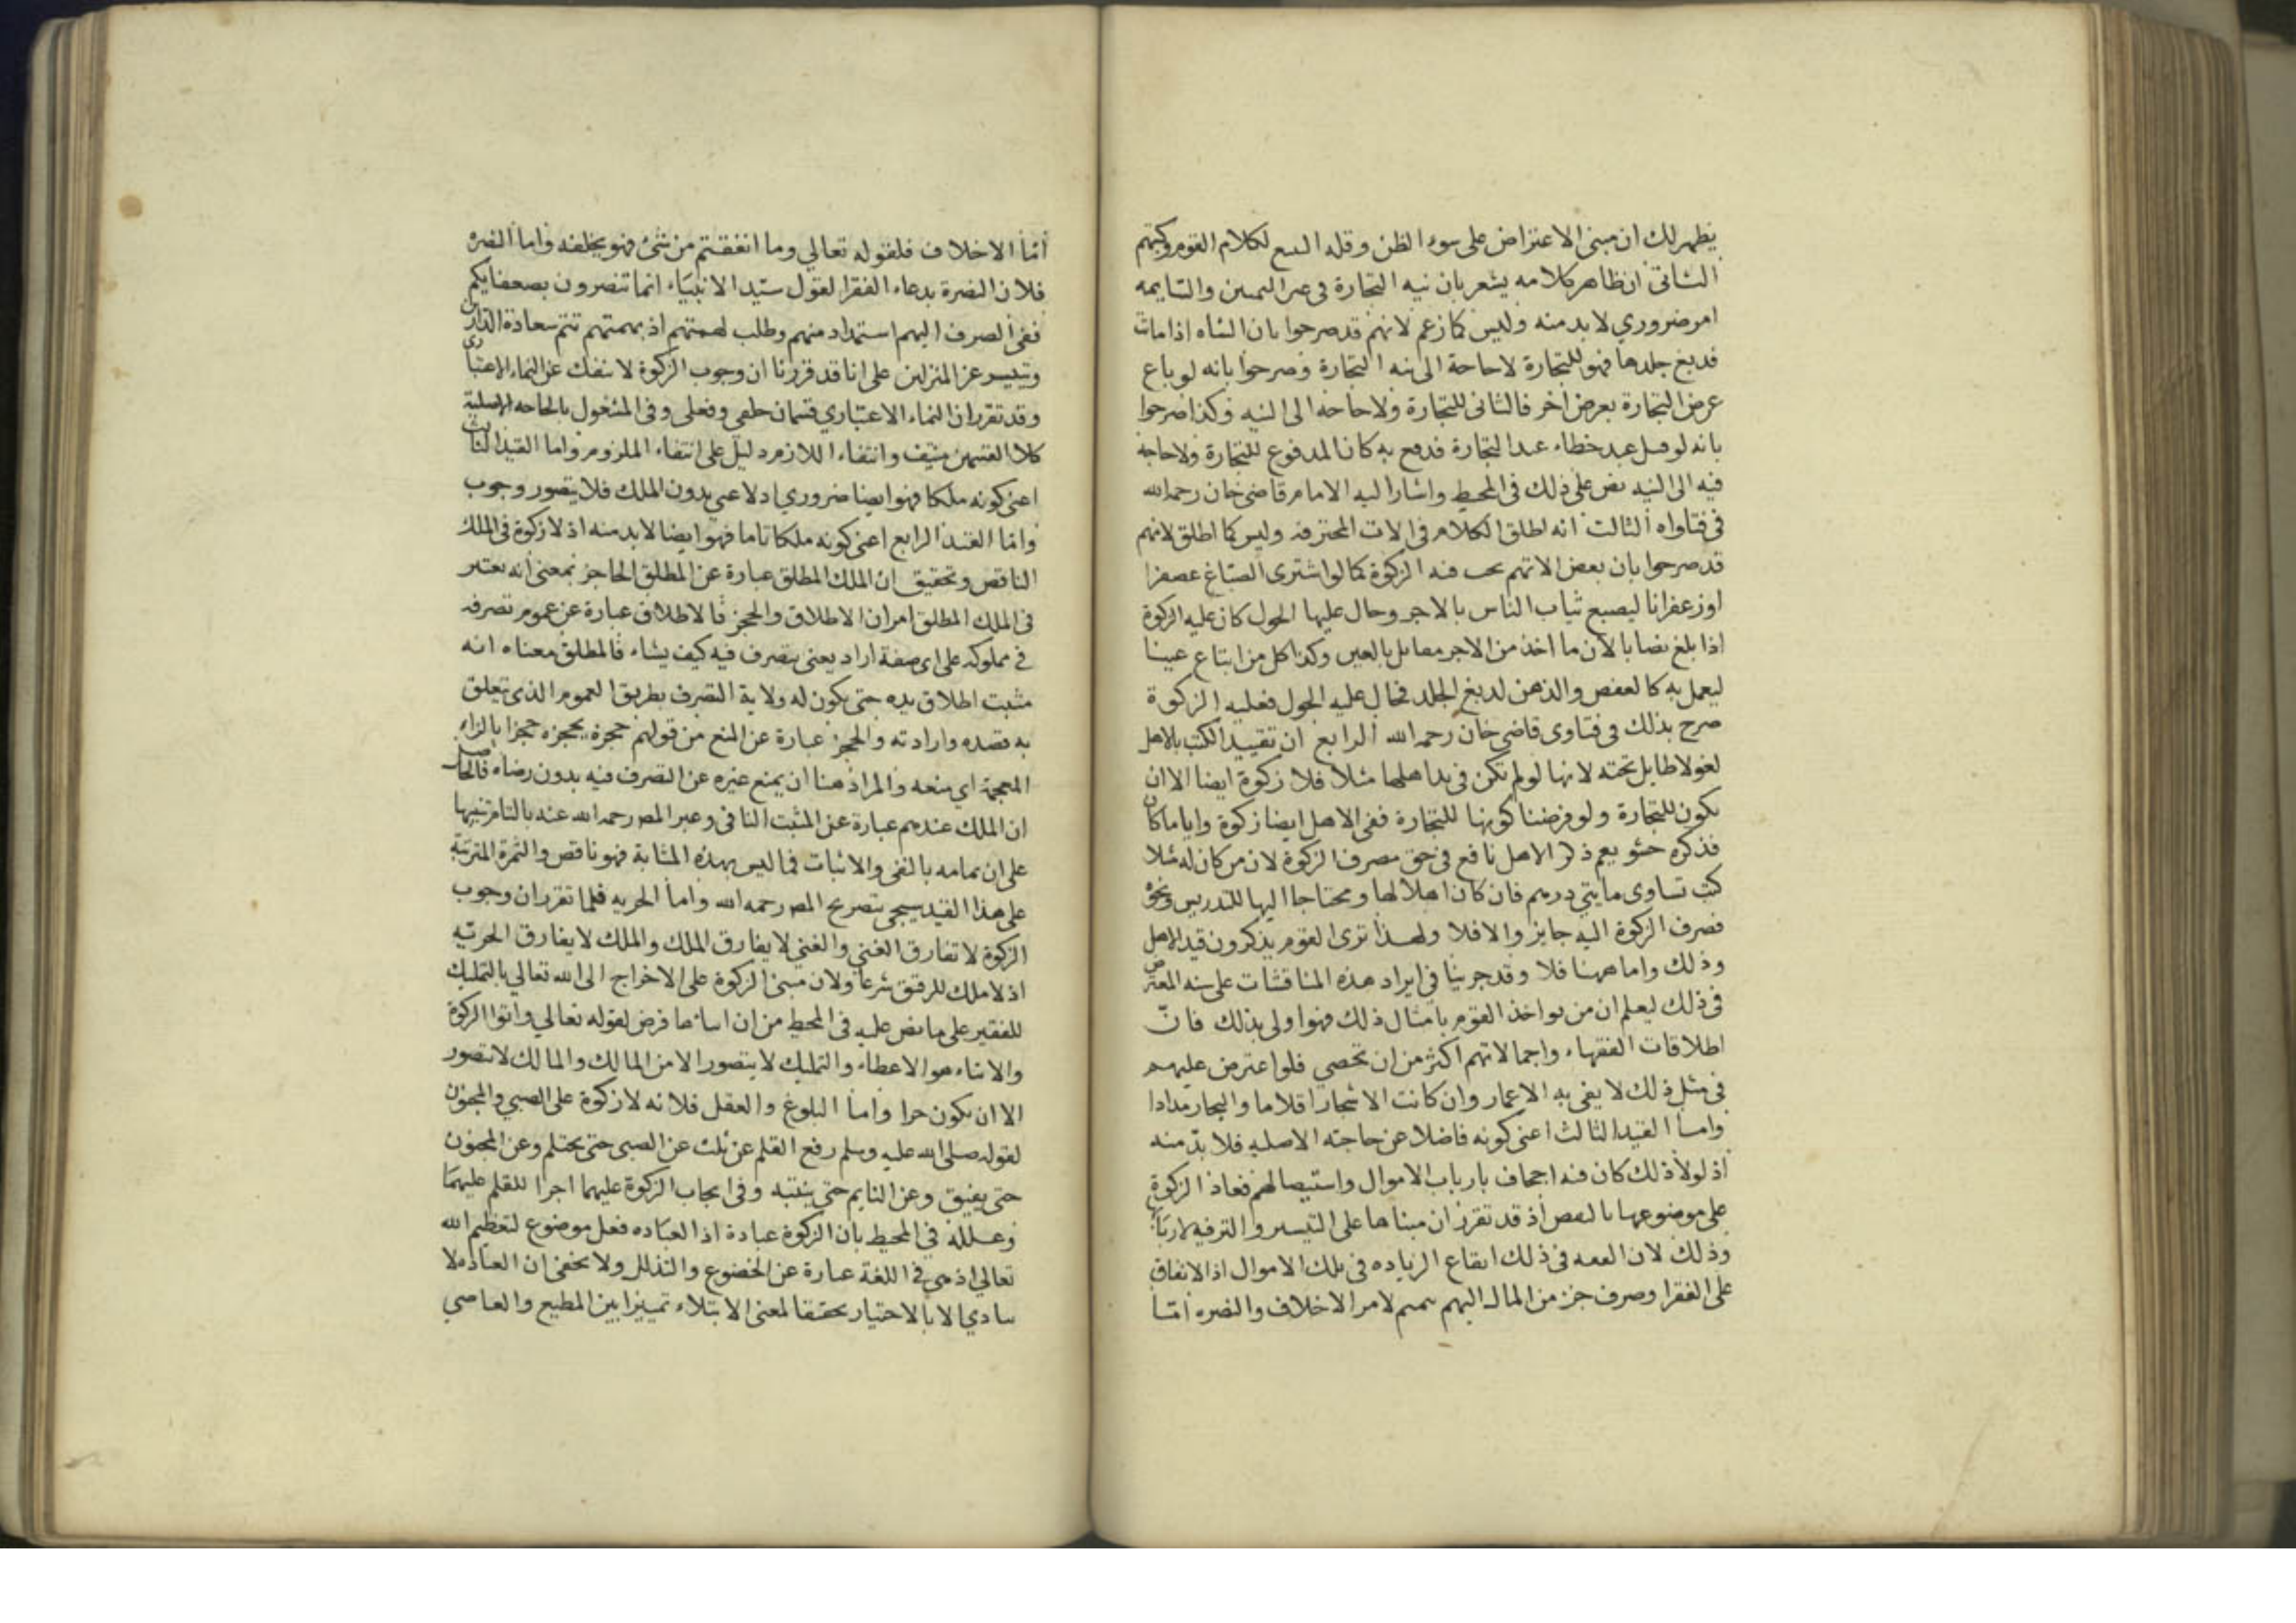 يظهر لك ان مبنى الاعتراض على سوء الظن وقله التتبع لكلام القوم وكتبهم
الثانى ان ظاهر كلامه يشعر بان نيه التجارة فى غير الثمنين والسايمه
امر ضروري لا بد منه وليس كما زعم لانهم قد صرحوا بان الشاه اذا ماتت
فدبغ جلدها فهو للتجارة لا حاجة الى نيه التجارة وصرحوا بانه لو باع
عرض التجارة بعرض اخر فالثانى للتجارة ولا حاجه الى النيه وكذا صرحوا
بانه لو قتل عبد خطاء عبد التجارة فدفع به كان المدفوع للتجارة ولا حاجة
فيه الى النيه نص على ذلك فى المحيط واشار اليه الامام قاضى خان رحمه الله
فى فتاواه الثالث انه اطلق الكلام فى الات المحترفه وليس كما اطلق لانهم
قد صرحوا بان بعض الاتهم يجب فيه الزكوة كما لو اشترى الصباغ عصفرا
او زعفرانا ليصبغ ثياب الناس بالاجر وحال عليها الحول كان عليه الزكوة
اذا بلغ نصابا لان ما اخذ من الاجر مقابل بالعين وكذا كل من ابتاع عينا
ليعمل به كالعفص والدهن لدبغ الجلد فحال عليه الحول فعليه الزكوة
صرح بذلك فى فتاوى قاضى خان رحمه الله الرابع ان تقييد الكتب بالاهل
لغو لا طايل تحته لانها لو لم تكن فى يد اهلها مثلا فلا زكوة ايضا الا ان
يكون للتجارة ولو فرضنا كونها للتجارة ففى الاهل ايضا زكوة واياما كان
فذكره حشو نعم ذكر الاهل نافع فى حق مصرف الزكوة لان من كان له مثلا
كتب تساوى مايتي درهم فان كان اهلا لها ومحتاجا اليها للتدريس ونحوه
فصرف الزكوة اليه جايز والا فلا ولهذا ترى القوم يذكرون قيد الاهل
وذلك واما ههنا فلا وقد جرينا فى ايراد هذه المناقشات على سنه المعترض
فى ذلك ليعلم ان من يواخذ القوم بامثال ذلك فهو اولى بذلك فانّ
اطلاقات الفقهاء واجمالاتهم اكثر من ان تحصي فلو اعترض عليهم
فى مثل ذلك لا يفى به الاعمار وان كانت الاشجار اقلاما والبحار مدادا
واما القيد الثالث اعنى كونه فاضلا عن حاجته الاصليه فلا بدّ منه
اذ لولا ذلك كان فيه اجحاف بارباب الاموال واستيصالهم فعاد الزكوة
على موضوعها بالنقض اذ قد تقرر ان مبناها على التيسير والترفيه لاربابها
وذلك لان الفقه فى ذلك ايقاع الزياده فى تلك الاموال اذ الانفاق
على الفقرا وصرف جز من المال اليهم لامر الاخلاف والنصره امّا
أمّا الاخلاف فلقوله تعالي وما انفقتم من شئ فهو يخلفه واما النصره
فلان النصرة بدعاء الفقرا لقول سيّد الانبياء انما تنصرون بضعفايكم
ففى الصرف اليهم استمداد منهم وطلب لهمتهم اذ بهمتهم تتم سعادة الدارين
على انا قد قررنا ان وجوب الزكوة لا ينفك عن النماء الاعتباري
وقد تقرر ان النماء الاعتباري قسمان خلقى وفعلى وفى المشغول بالحاجه الاصلية
كلا القسمين منتف وانتفاء اللازم دليل على انتفاء الملزوم واما القيد الثالث
اعنى كونه ملكا فهو ايضا ضروري اذ لا غنى بدون الملك فلا يتصور وجوب
وامّا القيد الرابع اعنى كونه ملكا تاما فهو ايضا لا بد منه اذ لا زكوة فى الملك
الناقص وتحقيق ان الملك المطلق عبارة عن المطلق الحاجز بمعنى انه يعتبر
فى الملك المطلق امران الاطلاق والحجز فالاطلاق عبارة عن عموم تصرفه
فى مملوكه على اى صفة اراد يعنى يتصرف فيه كيف يشاء فالمطلق معناه انه
مثبت اطلاق يده حتى يكون له ولاية التصرف بطريق العموم الذى تعلق
به قصده وارادته والحجز عبارة عن المنع من قولهم حجزه يحجزه حجزا بالزاء
المعجمة اي منعه والمراد هنا ان يمنع غيره عن التصرف فيه بدون رضاه فالحاصل
ان الملك عندهم عبارة عن المثبت النافى وعبر المص رحمه الله عنه بالتام تنبيها
على ان تمامه بالنفى والاثبات فما ليس بهذه المثابة فهو ناقص والثمرة المترتبة
على هذا القيد سيجى بتصريح المص رحمه الله واما الحريه فلما تقرر ان وجوب
الزكوة لا تفارق الغني والغني لا يفارق الملك والملك لا يفارق الحريّه
اذ لا ملك للرقيق شرعا ولان مبنى الزكوة على الاخراج الى الله تعالي بالتمليك
للفقير على ما نص عليه فى المحيط من ان ايتاءها فرض لقوله تعالي واتوا الزكوة
والايتاء هو الاعطاء والتمليك لا يتصور الا من المالك والمالك لا يتصور
الا ان يكون حرا واما البلوغ والعقل فلانه لا زكوة على الصبي والمجنون
لقوله صلى الله عليه وسلم رفع القلم عن ثلث عن الصبى حتى يحتلم وعن المجنون
حتى يفيق وعن النايم حتى ينتبه وفى ايجاب الزكوة عليهما اجرا للقلم عليهما
وعلله فى المحيط بان الزكوة عبادة اذ العباده فعل موضوع لتعظيم الله
تعالي اذ هى فى اللغة عبارة عن الخضوع والتذلل ولا يخفى ان العبادة لا
يتادي الا بالاختيار تحقيقا لمعنى الابتلاء تمييزا بين المطيع والعاصي